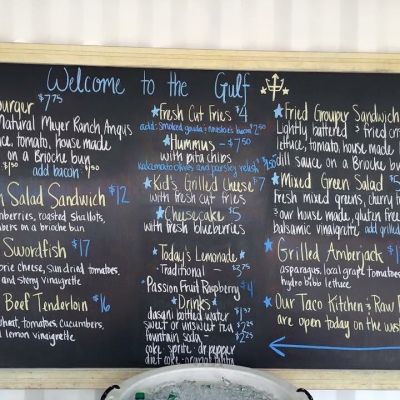 Welcome to the Gulf
burger $7.75
Natural Meyer Ranch Angus
tomato, house made
on a Brioche bun
add bacon $1.50
Salad Sandwich $12
roasted shallots,
on a brioche bun
Swordfish $17
cheese, sun dried tomatoes,
vinaigrette
Beef Tenderloin $16
tomatoes, cucumbers,
lemon vinaigrette
Fresh Cut Fries $4
add: smoked gouda bacon $2.50
Hummus - $7.50
with pita chips
kalamata olives and parsley relish
Kid's Grilled Cheese $7
with fresh cut fries
Cheesecake $5
with fresh blueberries
Today's Lemonade
Traditional - $2.75
Passion Fruit Raspberry $4
Drinks
dasani bottled water $1.37
sweet or unsweet tea $2.25
fountain soda - $2.25
coke · sprite · dr. pepper
diet coke · orange fanta
Fried Grouper Sandwich
Lightly battered & fried
lettuce, tomato, house made
dill sauce on a Brioche
Mixed Green Salad $
Fresh mixed greens, cherry
& our house made, gluten free
balsamic vinaigrette add grilled
Grilled Amberjack $1
asparagus, local grape tomatoes,
hydro bibb lettuce
Our Taco Kitchen & Raw
are open today on the